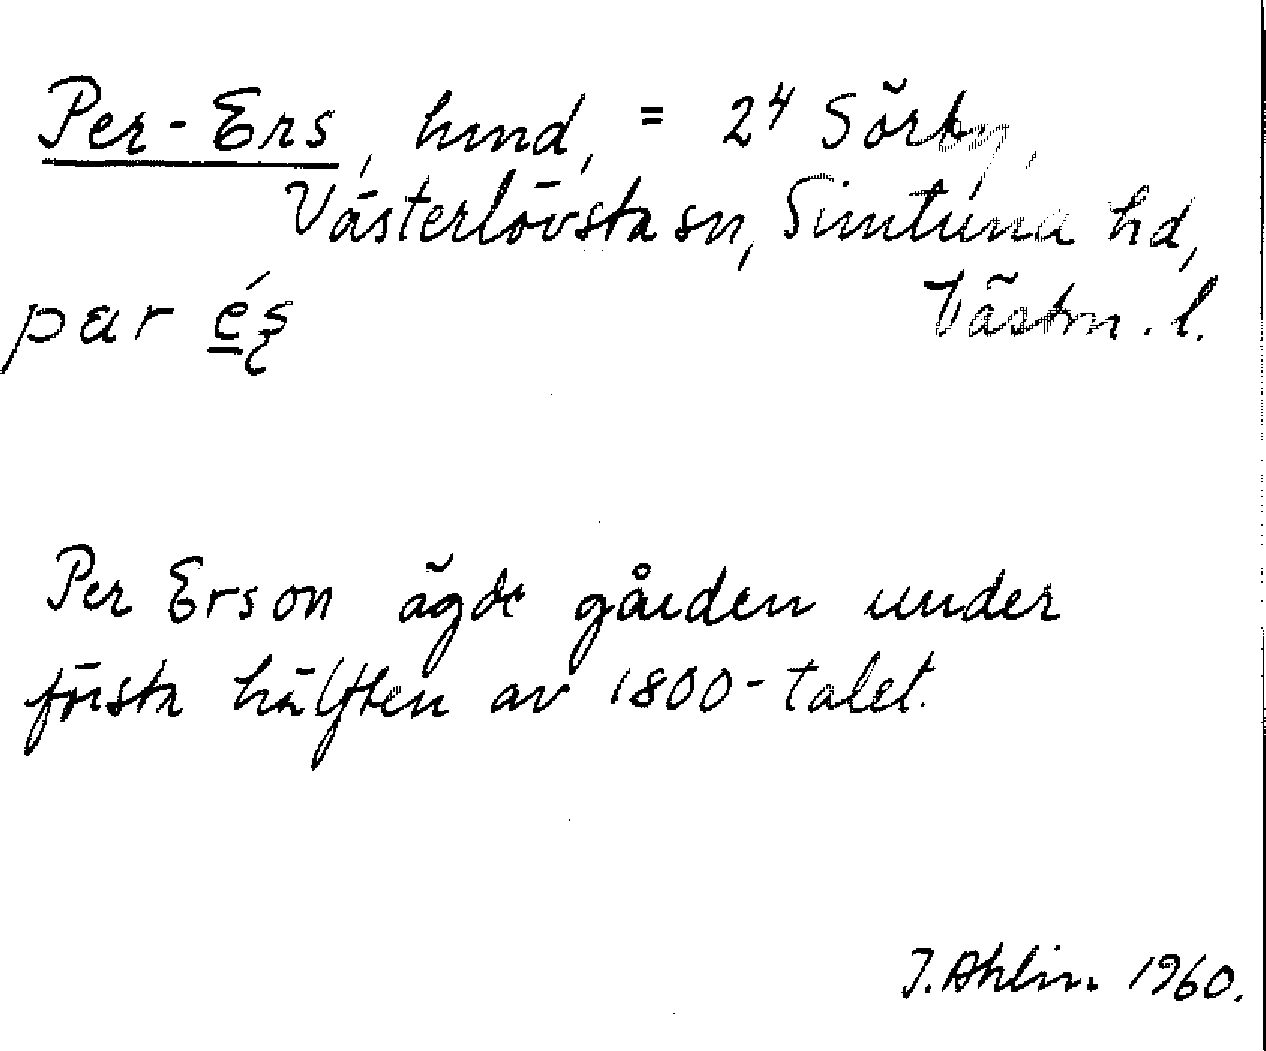 Per-Ers, hmd, = 2⁴ Sörby,
Västerlövsta sn, Simtuna hd,
par é̲ʂ Västm. l.
Per Erson ägde gården under
första hälften av 1800-talet.
J. Ahlin. 1960.